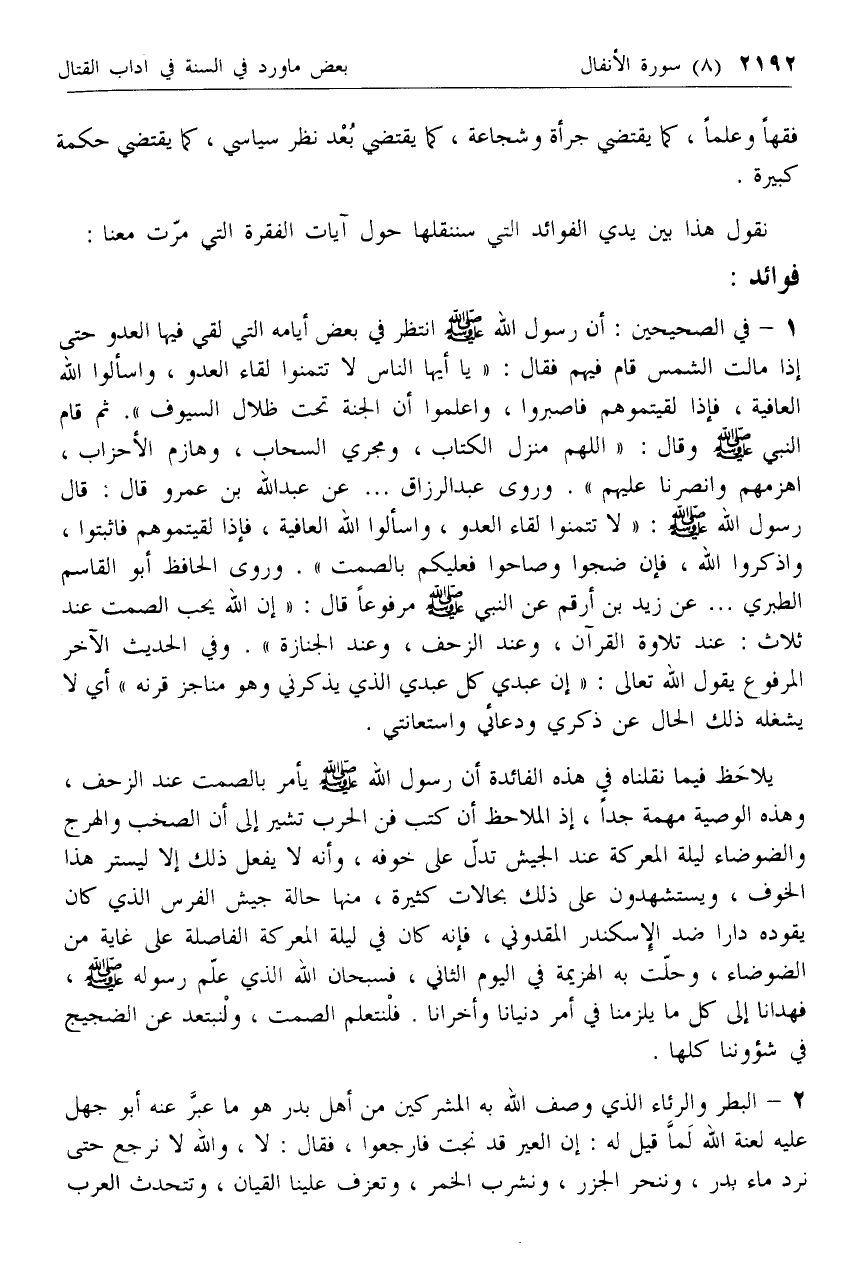 ٢١٩٢ (٨) سورة الأنفال بعض ماورد في السنة في اداب القتال
فقهاً وعلماً ، كما يقتضي جرأة وشجاعة ، كما يقتضي بُعْد نظر سياسي ، كما يقتضي حكمة
كبيرة .
نقول هذا بين يدي الفوائد التي سننقلها حول آيات الفقرة التي مرّت معنا :
فوائد :
١ – في الصحيحين : أن رسول الله ﷺ انتظر في بعض أيامه التي لقي فيها العدو حتى
إذا مالت الشمس قام فيهم فقال : « يا أيها الناس لا تتمنوا لقاء العدو ، واسألوا الله
العافية ، فإذا لقيتموهم فاصبروا ، واعلموا أن الجنة تحت ظلال السيوف ». ثم قام
النبي ﷺ وقال : « اللهم منزل الكتاب ، ومجري السحاب ، وهازم الأحزاب ،
اهزمهم وانصرنا عليهم » . وروى عبدالرزاق ... عن عبدالله بن عمرو قال : قال
رسول الله ﷺ : « لا تتمنوا لقاء العدو ، واسألوا الله العافية ، فإذا لقيتموهم فاثبتوا ،
واذكروا الله ، فإن ضجوا وصاحوا فعليكم بالصمت » . وروى الحافظ أبو القاسم
الطبري ... عن زيد بن أرقم عن النبي ﷺ مرفوعاً قال : « إن الله يحب الصمت عند
ثلاث : عند تلاوة القرآن ، وعند الزحف ، وعند الجنازة » . وفي الحديث الآخر
المرفوع يقول الله تعالى : « إن عبدي كل عبدي الذي يذكرني وهو مناجز قرنه » أي لا
يشغله ذلك الحال عن ذكري ودعائي واستعانتي .
يلاحَظ فيما نقلناه في هذه الفائدة أن رسول الله ﷺ يأمر بالصمت عند الزحف ،
وهذه الوصية مهمة جداً ، إذ الملاحظ أن كتب فن الحرب تشير إلى أن الصخب والهرج
والضوضاء ليلة المعركة عند الجيش تدلّ على خوفه ، وأنه لا يفعل ذلك إلا ليستر هذا
الخوف ، ويستشهدون على ذلك بحالات كثيرة ، منها حالة جيش الفرس الذي كان
يقوده دارا ضد الإسكندر المقدوني ، فإنه كان في ليلة المعركة الفاصلة على غاية من
الضوضاء ، وحلّت به الهزيمة في اليوم الثاني ، فسبحان الله الذي علّم رسوله ﷺ ،
فهدانا إلى كل ما يلزمنا في أمر دنيانا وأخرانا . فلْنتعلم الصمت ، ولْنبتعد عن الضجيج
في شؤوننا كلها .
٢ – البطر والرئاء الذي وصف الله به المشركين من أهل بدر هو ما عبرَّ عنه أبو جهل
عليه لعنة الله لَماَّ قيل له : إن العير قد نجت فارجعوا ، فقال : لا ، والله لا نرجع حتى
نرد ماء بدر ، وننحر الجزر ، ونشرب الخمر ، وتعزف علينا القيان ، وتتحدث العرب